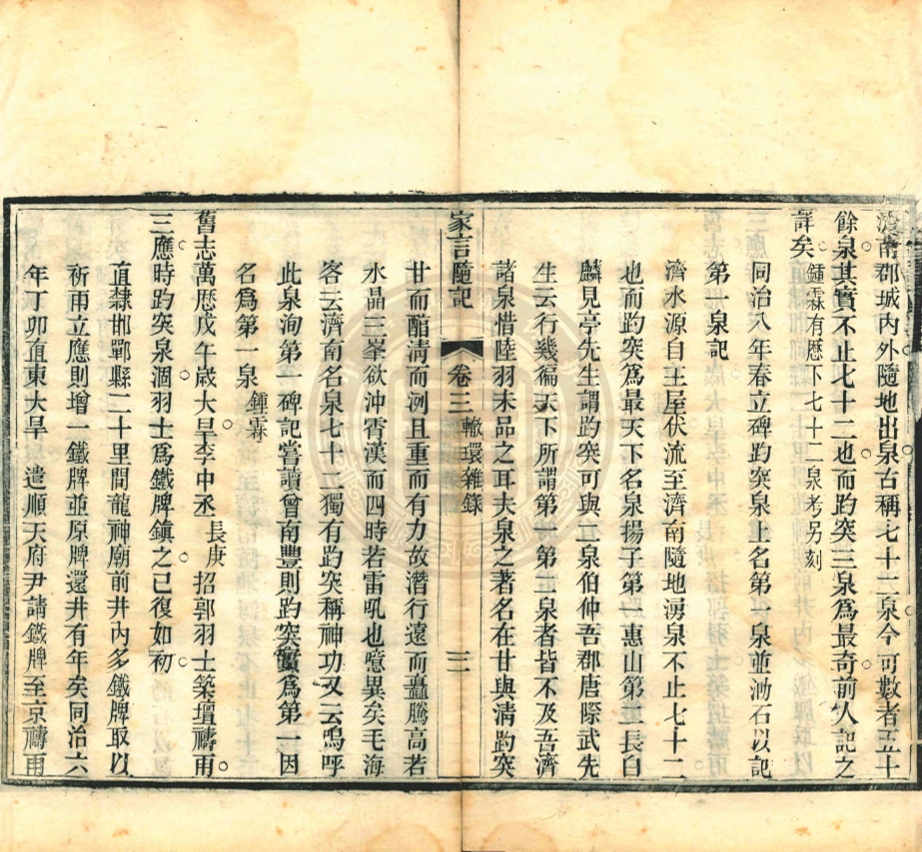 濟南郡城內外隨地出泉古稱七十二泉今可數者五十
餘泉其實不止七十二也而趵突三泉爲最奇前人記之
詳矣鍾霖有歷下七十二泉考另刻
同治八年春立碑趵突泉上名第一泉並泐石以記
第一泉記
濟水源自王屋伏流至濟南隨地湧泉不止七十二
也而趵突爲最天下名泉揚子第一惠山第二長白
麟見亭先生謂趵突可與二泉伯仲吾郡唐際武先
生云行幾徧天下所謂第一第二泉者皆不及吾濟
諸泉惜陸羽未品之耳夫泉之著名在甘與清趵突
家言隨記 卷三 轍環雜錄 三
甘而醇清而洌且重而有力故潛行遠而矗騰高若
水晶三峯欲沖霄漢而四時若雷吼也噫異矣毛海
客云濟南名泉七十二獨有趵突稱神功又云嗚呼
此泉洵第一碑記嘗讀曾南豐則趵突實爲第一因
名爲第一泉鍾霖
舊志萬歷戊午歲大旱李中丞長庚招郭羽士築壇禱雨
三應時趵突泉涸羽士爲鐵牌鎮之已復如初
直隸邯鄲縣二十里間龍神廟前井內多鐵牌取以
祈雨立應則增一鐵牌並原牌還井有年矣同治六
年丁卯直東大旱 遣順天府尹請鐵牌至京禱雨